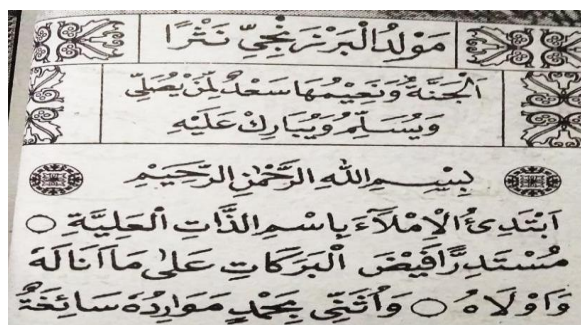 مَوْلِدُ الْبَرْزَنْجِيِّ نَثْرًا
اَلْجَنَّةُ وَنَعِيْمُهَا سَعْدٌ لِمَنْ يُصَلِّيْ
وَيُسَلِّمُ وَيُبَارِكُ عَلَيْهِ
بِسْــمِ اللهِ الرَّحْمٰنِ الرَّحِيْمِ
اَبْتَدِئُ الْاِمْلَآءَ بِاسْمِ الذَّاتِ الْعَلِيَّةِ ○
مُسْتَدِرًّا فَيْضَ الْبَرَكَاتِ عَلٰى مَا اَنَالَهُ
وَاَوْلَاهُ ○ وَاُثَنِّيْ بِحَمْدٍ مَوَارِدُهُ سَائِغَةٌ